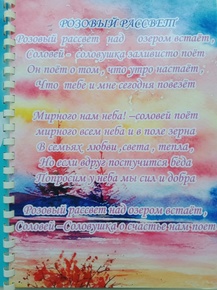 РОЗОВЫЙ РАССВЕТ
Розовый рассвет над озером встаёт,
Соловей - соловушка заливисто поёт
Он поёт о том, что утро настаёт,
Что тебе и мне сегодня повезёт
Мирного нам неба! -соловей поёт
мирного всем неба и в поле зерна
В семьях любви, света, тепла,
Но если вдруг постучится беда
Попросим у неба мы сил и добра
Розовый рассвет над озером встаёт,
Соловей -Соловушка о счастье нам поёт